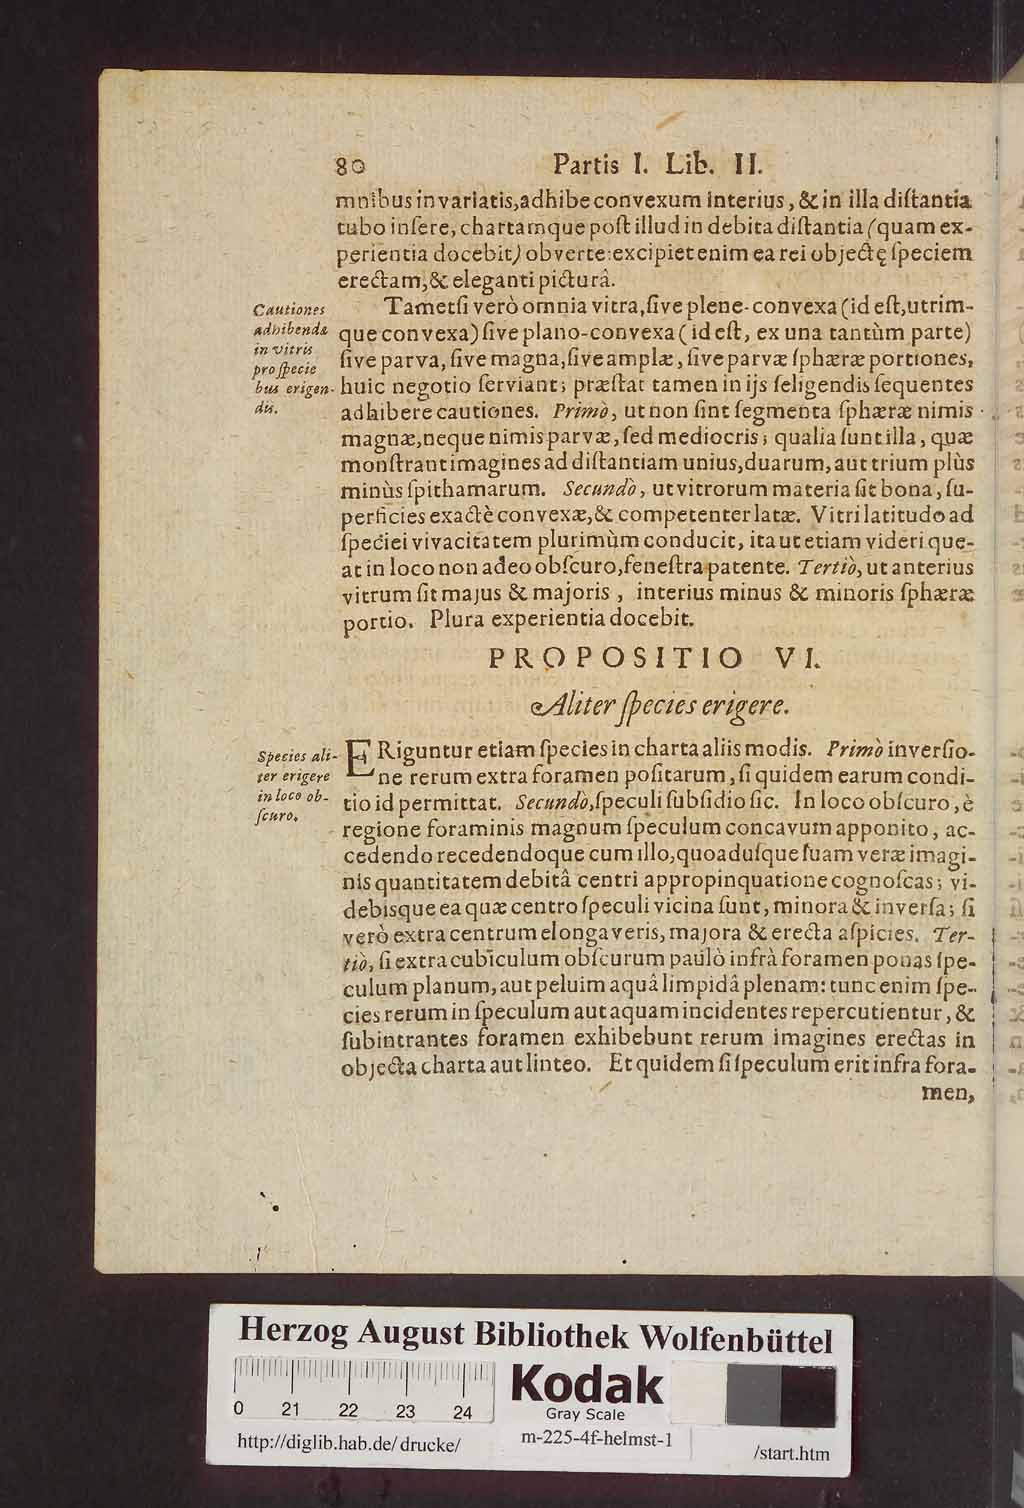 80 Partis I. Lib. II.
mnibus invariatis, adhibe convexum interius, & in illa diſtantia
tubo inſere, chartamque poſt illud in debita diſtantia (quam ex-
perientia docebit) obverte: excipiet enim ea rei objectę ſpeciem
erectam, & eleganti picturâ.
Cautiones
adhibendæ
in vitris
pro ſpecie
bus erigen-
dis.
Tametſi verò omnia vitra, ſive plene-convexa (id eſt, utrim-
que convexa) ſive plano-convexa (id eſt, ex una tantùm parte)
ſive parva, ſive magna, ſive amplæ, ſive parvæ ſphæræ portiones,
huic negotio ſerviant; præſtat tamen in ijs ſeligendis ſequentes
adhibere cautiones. Primò, ut non ſint ſegmenta ſphæræ nimis
magnæ, neque nimis parvæ, ſed mediocris; qualia ſunt illa, quæ
monſtrant imagines ad diſtantiam unius, duarum, aut trium plùs
minùs ſpithamarum. Secundò, ut vitrorum materia ſit bona, ſu-
perficies exactè convexæ, & competenter latæ. Vitri latitudo ad
ſpeciei vivacitatem plurimùm conducit, ita ut etiam videri que-
at in loco non adeo obſcuro, feneſtra patente. Tertiò, ut anterius
vitrum ſit majus & majoris, interius minus & minoris ſphæræ
portio. Plura experientia docebit.
PROPOSITIO VI.
Aliter ſpecies erigere.
Species ali-
ter erigere
in loco ob-
ſcuro.
ERiguntur etiam ſpecies in charta aliis modis. Primò inverſio-
ne rerum extra foramen poſitarum, ſi quidem earum condi-
tio id permittat. Secundò, ſpeculi ſubſidio ſic. In loco obſcuro, è
regione foraminis magnum ſpeculum concavum apponito, ac-
cedendo recedendoque cum illo, quoaduſque ſuam veræ imagi-
nis quantitatem debitâ centri appropinquatione cognoſcas; vi-
debisque ea quæ centro ſpeculi vicina ſunt, minora & inverſa; ſi
verò extra centrum elongaveris, majora & erecta aſpicies. Ter-
tiò, ſi extra cubiculum obſcurum paulò infrà foramen ponas ſpe-
culum planum, aut peluim aquâ limpidâ plenam: tunc enim ſpe-
cies rerum in ſpeculum aut aquam incidentes repercutientur, &
ſubintrantes foramen exhibebunt rerum imagines erectas in
objecta charta aut linteo. Et quidem ſi ſpeculum erit infra fora-
men,
Herzog August Bibliothek Wolfenbüttel
0 21 22 23 24
Kodak
Gray Scale
http://diglib.hab.de/drucke/ m-225-4f-helmst-1 /start.htm